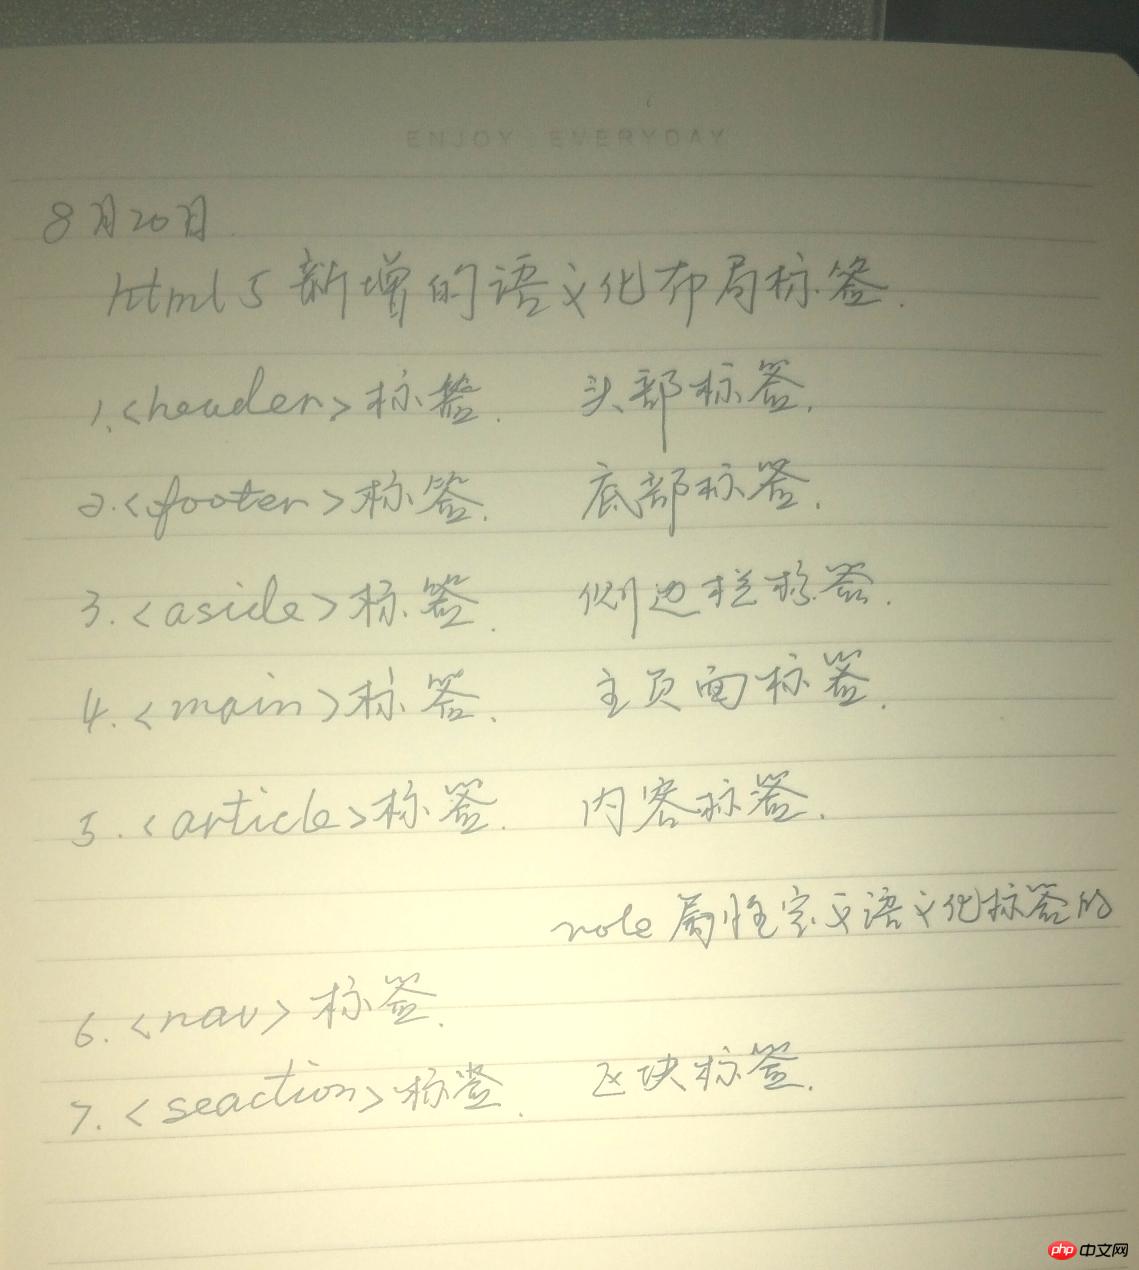 ENJOY EVERYDAY
8月20日.
html5新增的语义化布局标签.
1.<header>标签. 头部标签.
2.<footer>标签. 底部标签.
3.<aside>标签. 侧边栏标签.
4.<main>标签. 主页面标签.
5.<article>标签. 内容标签.
role属性定义语义化标签的
6.<nav>标签.
7.<seaction>标签. 区块标签.
php 中文网